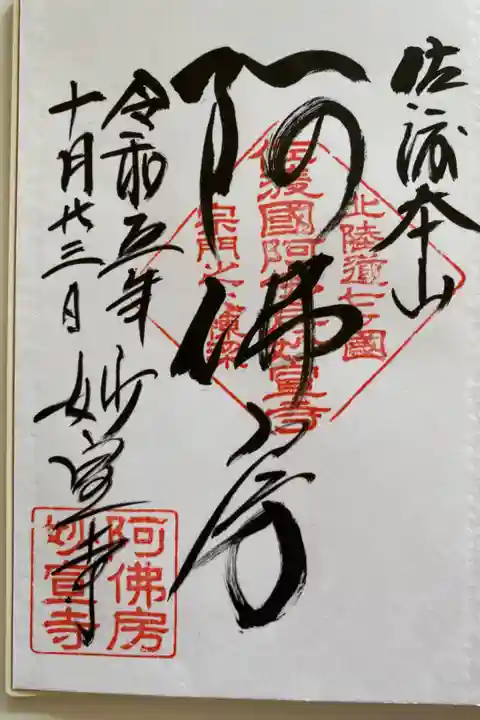 佐渡本山
阿佛房
令和五年
十月廿三日
妙宣寺
北陸道七ヶ國
佐渡國阿佛房妙宣寺
阿佛房
妙宣寺